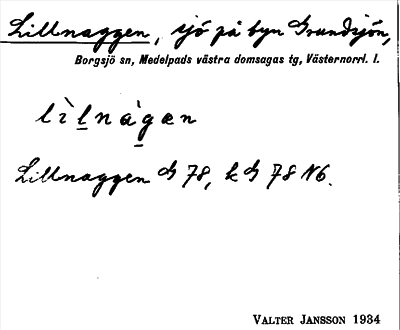 Lillnaggen, sjö på byn Grundsjön,
Borgsjö sn, Medelpads västra domsagas tg, Västernorrl. l.
lìl̲nág̲æn
Lillnaggen G 78, k G 78 N6.
VALTER JANSSON 1934